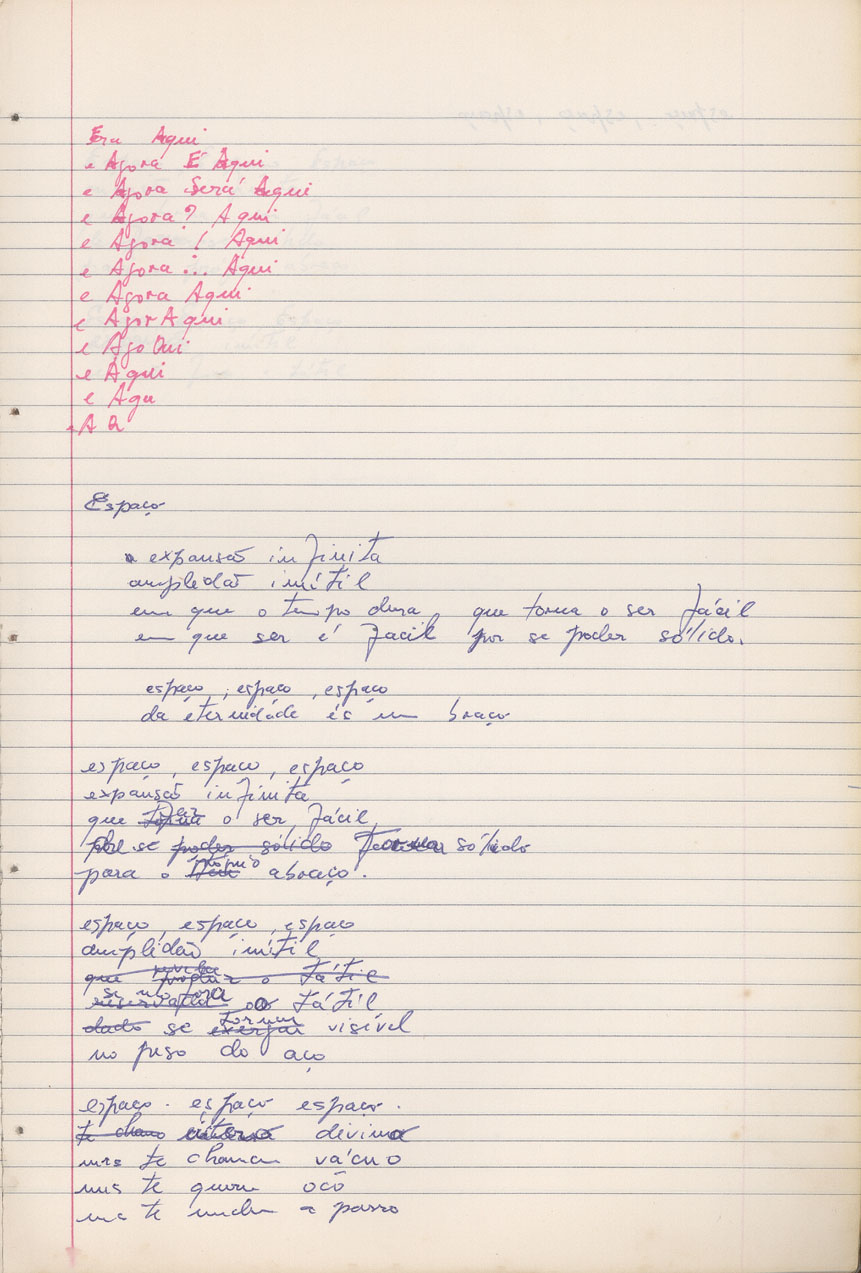 Era Aqui
e Agora É Aqui
e Agora Será Aqui
e Agora? Aqui
e Agora! Aqui
e Agora... Aqui
e Agora Aqui
e AgorAqui
e AgoQui
e Aqui
e Aqu
A Q
Espaço
expansão infinita
amplidão inútil
em que o tempo dura, que torna o ser fácil
em que ser é facil por se poder sólido.
espaço, espaço, espaço
da eternidade és um braço
espaço, espaço, espaço
expansão infinita
que faz o ser fácil
se poder sólido tornar sólido
para o próprio abraço.
espaço, espaço, espaço
amplidão inútil
que produz o tátil
se não fora o tátil
dado se tornar visível
no peso do aço
espaço. espaço espaço.
te chamo divino
mas te chamam vácuo
mas te querem oco
mas te medem a passo